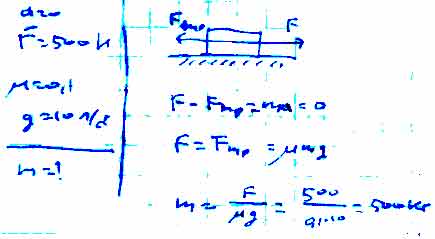 a=0
F=500 н
μ=0,1
g=10 м/с²
m=?
Fтр F
F - Fтр = ma = 0
F = Fтр = μmg
m = F/μg = 500/0,1·10 = 500кг